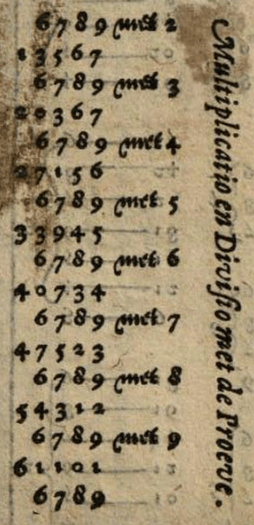 6789 met 2
13567
6789 met 3
20367
6789 met 4
27156
6789 met 5
33945
6789 met 6
40734
6789 met 7
47523
6789 met 8
54312
6789 met 9
61101
6789
Multiplicatio en Diviſio met de Proeve.